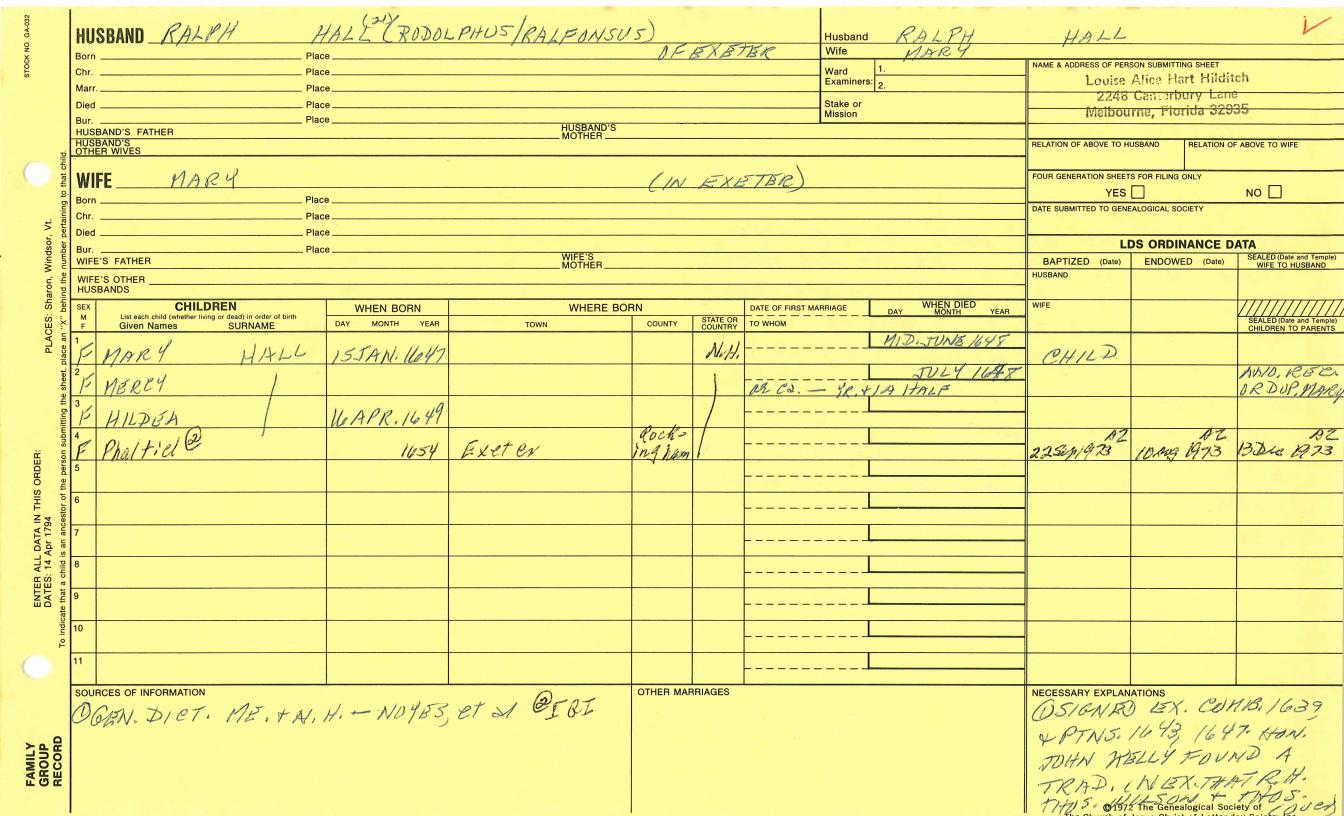 STOCK NO. GA-032
HUSBAND RALPH HALL (21) (RODOLPHUS/RALFONSUS)
Born Place OF EXETER
Chr. Place
Marr. Place
Died Place
Bur. Place
HUSBAND'S FATHER HUSBAND'S MOTHER
HUSBAND'S OTHER WIVES
Husband RALPH HALL
Wife MARY
Ward Examiners: 1.
2.
Stake or Mission
NAME & ADDRESS OF PERSON SUBMITTING SHEET
Louise Alice Hart Hilditch
2248 Canterbury Lane
Melbourne, Florida 32935
RELATION OF ABOVE TO HUSBAND RELATION OF ABOVE TO WIFE
FOUR GENERATION SHEETS FOR FILING ONLY
YES NO
DATE SUBMITTED TO GENEALOGICAL SOCIETY
WIFE MARY (IN EXETER)
Born Place
Chr. Place
Died Place
Bur. Place
WIFE'S FATHER WIFE'S MOTHER
WIFE'S OTHER HUSBANDS
LDS ORDINANCE DATA
BAPTIZED (Date) ENDOWED (Date) SEALED (Date and Temple) WIFE TO HUSBAND
HUSBAND
WIFE
SEALED (Date and Temple) CHILDREN TO PARENTS
SEX M F CHILDREN List each child (whether living or dead) in order of birth Given Names SURNAME
WHEN BORN DAY MONTH YEAR
WHERE BORN TOWN COUNTY STATE OR COUNTRY
DATE OF FIRST MARRIAGE TO WHOM
WHEN DIED DAY MONTH YEAR
1 F MARY HALL 15 JAN. 1647 N.H. MID-JUNE 1648 CHILD
2 F MERCY JULY 1648
YR. + 1A HALF
OR DUP. MARY
3 F HILDEA 16 APR. 1649
4 F Phaltiel ② 1654 Exeter Rockingham 22 Sep 1973 AZ 10 Aug 1973 AZ 13 Dec 1973 AZ
5
6
7
8
9
10
11
SOURCES OF INFORMATION
① GEN. DICT. ME. + N.H. — NOYES, et al ② IGI
OTHER MARRIAGES
NECESSARY EXPLANATIONS
① SIGNED EX. COMB. 1639
+ PTNS. 1643, 1647. HON.
JOHN KELLY FOUND A
TRAD. IN EX. THAT R.H.
THOS. WILSON + THOS.
(over)
©1972 The Genealogical Society of
The Church of Jesus Christ of Latter-day Saints
PLACES: Sharon, Windsor, Vt.
ENTER ALL DATA IN THIS ORDER:
DATES: 14 Apr 1794
To indicate that a child is an ancestor of the person submitting the sheet, place an "X" behind the number pertaining to that child.
FAMILY GROUP RECORD